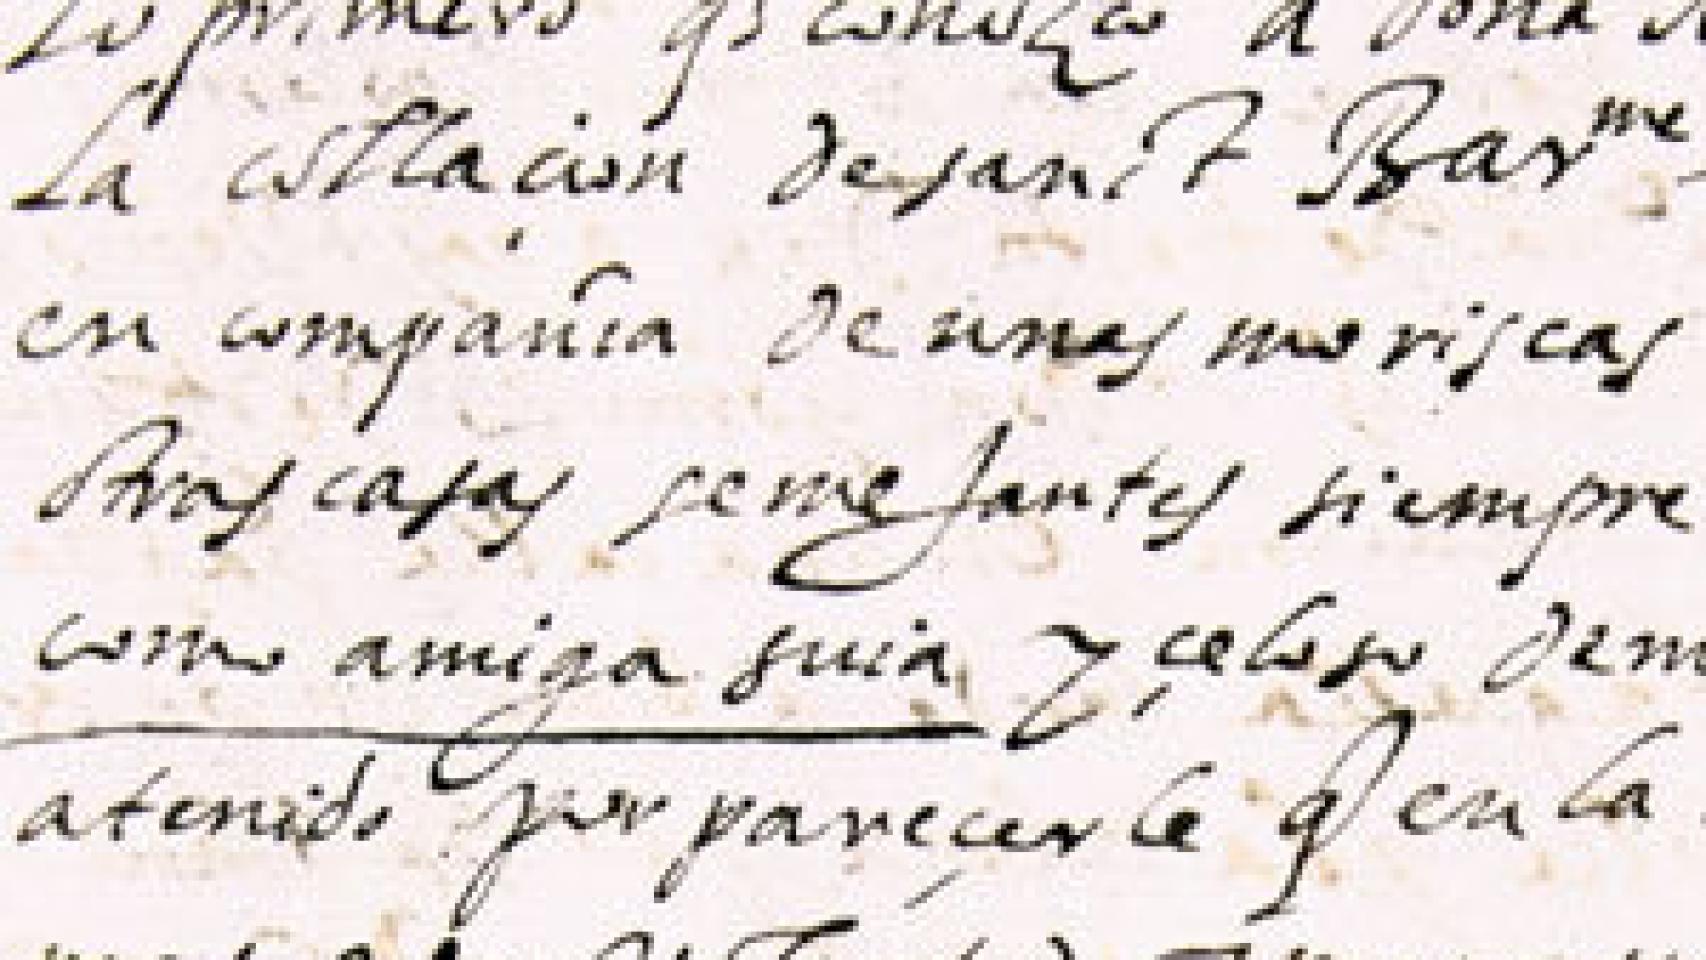 Lo primero q̃ conozco a doña
La collaçion de san t Barme
en compañia de unas moriscas
otras casas semejantes siempre
como amiga guia y çeloso dem
a tenido por pareçerle q̃ en la